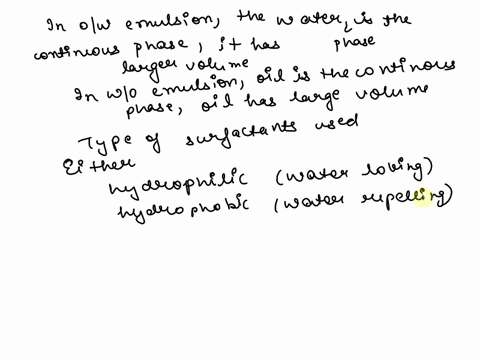 In o/w emulsion, the water is the
continuous phase, it has phase
larger volume
In w/o emulsion, oil is the continous
phase, oil has large volume
Type of surfactants used
Either
hydrophilic (water loving)
hydrophobic (water repelling)